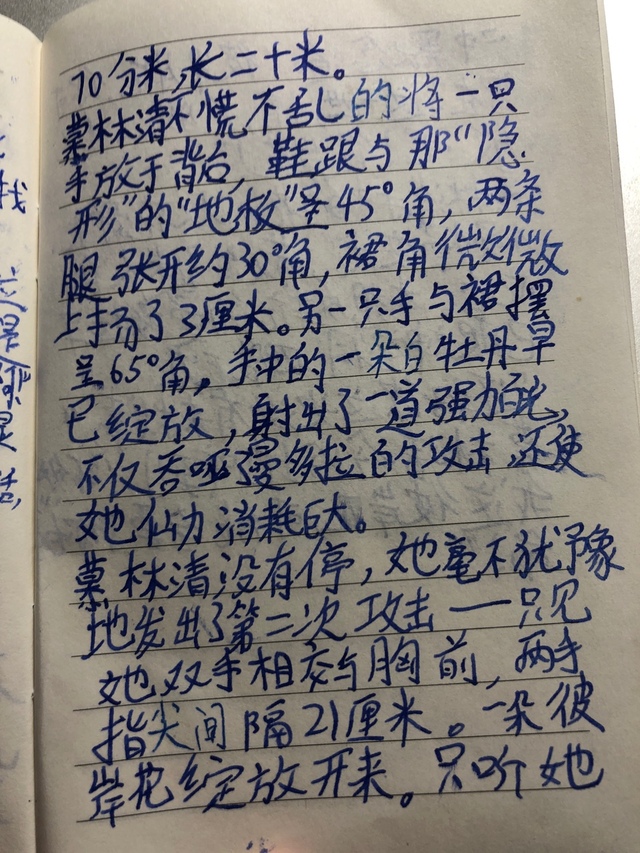 10分米,长二十米。
慕林清不慌不乱的将一只
手放于背后,鞋跟与那“隐
形”的“地板”呈45°角,两条
腿张开约30°角,裙角微微
上扬了3厘米。另一只手与裙摆
呈65°角,手中的一朵白牡丹早
已绽放,射出了一道强力的光,
不仅吞噬曼多拉的攻击,还使
她仙力消耗巨大。
慕林清没有停,她毫不犹豫
地发出了第二次攻击——只见
她双手相交与胸前,两手
指尖间隔21厘米。一朵彼
岸花绽放开来。只听她
找
是
是
话,